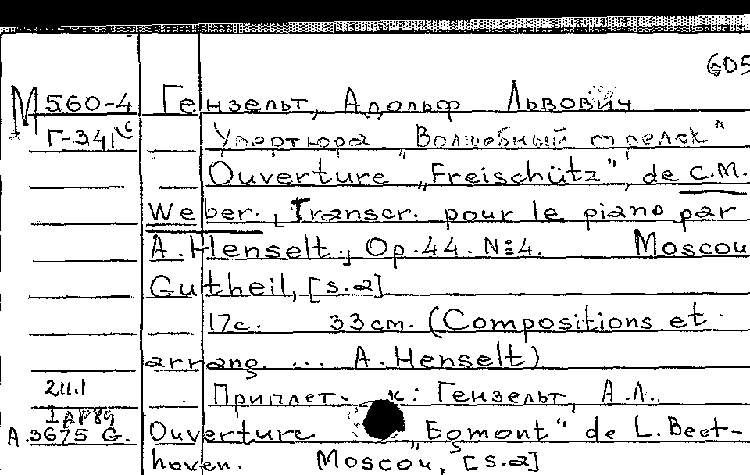 6D5
М 560-4 Гензельт, Адольф Львович
Г-341 Увертюра „Волшебный стрелок"
Ouverture „Freischütz", de C.M.
Weber., Transcr. pour le piano par
A. Henselt., Op.44. №4. Moscou
Gutheil, [s.a]
17с. 33cm. (Compositions et
arrang. ... A. Henselt)
24.1 Приплет. к: Гензельт, А.Л.
A.3675 G. Ouverture „Egmont" de L. Beet-
hoven. Moscou, [s.a]